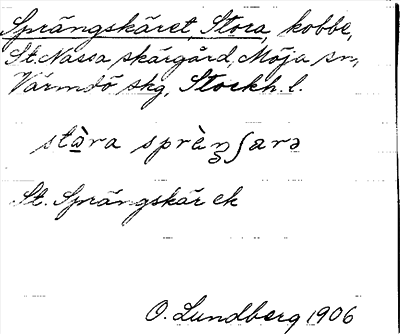 Sprängskäret, Stora, kobbe,
St. Nassa skärgård, Möja sn,
Värmdö skg, Stockh. l.
stàra sprèŋʃarə
St. Sprängskär ek
O. Lundberg 1906